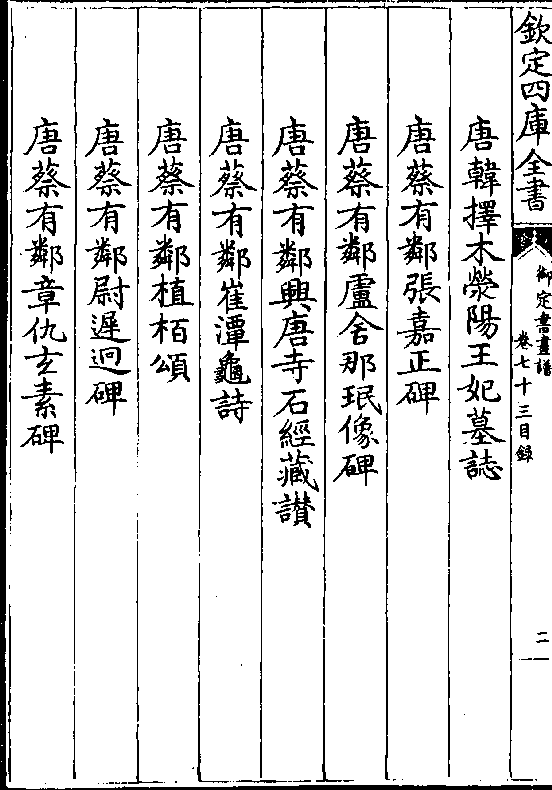 欽定四庫全書
御定書畫譜
卷七十三目録
二
唐韓擇木滎陽王妃墓誌
唐蔡有鄰張嘉正碑
唐蔡有鄰盧舍那珉像碑
唐蔡有鄰興唐寺石經藏讃
唐蔡有鄰崔潭龜詩
唐蔡有鄰植栢頌
唐蔡有鄰尉遲迥碑
唐蔡有鄰章仇玄素碑